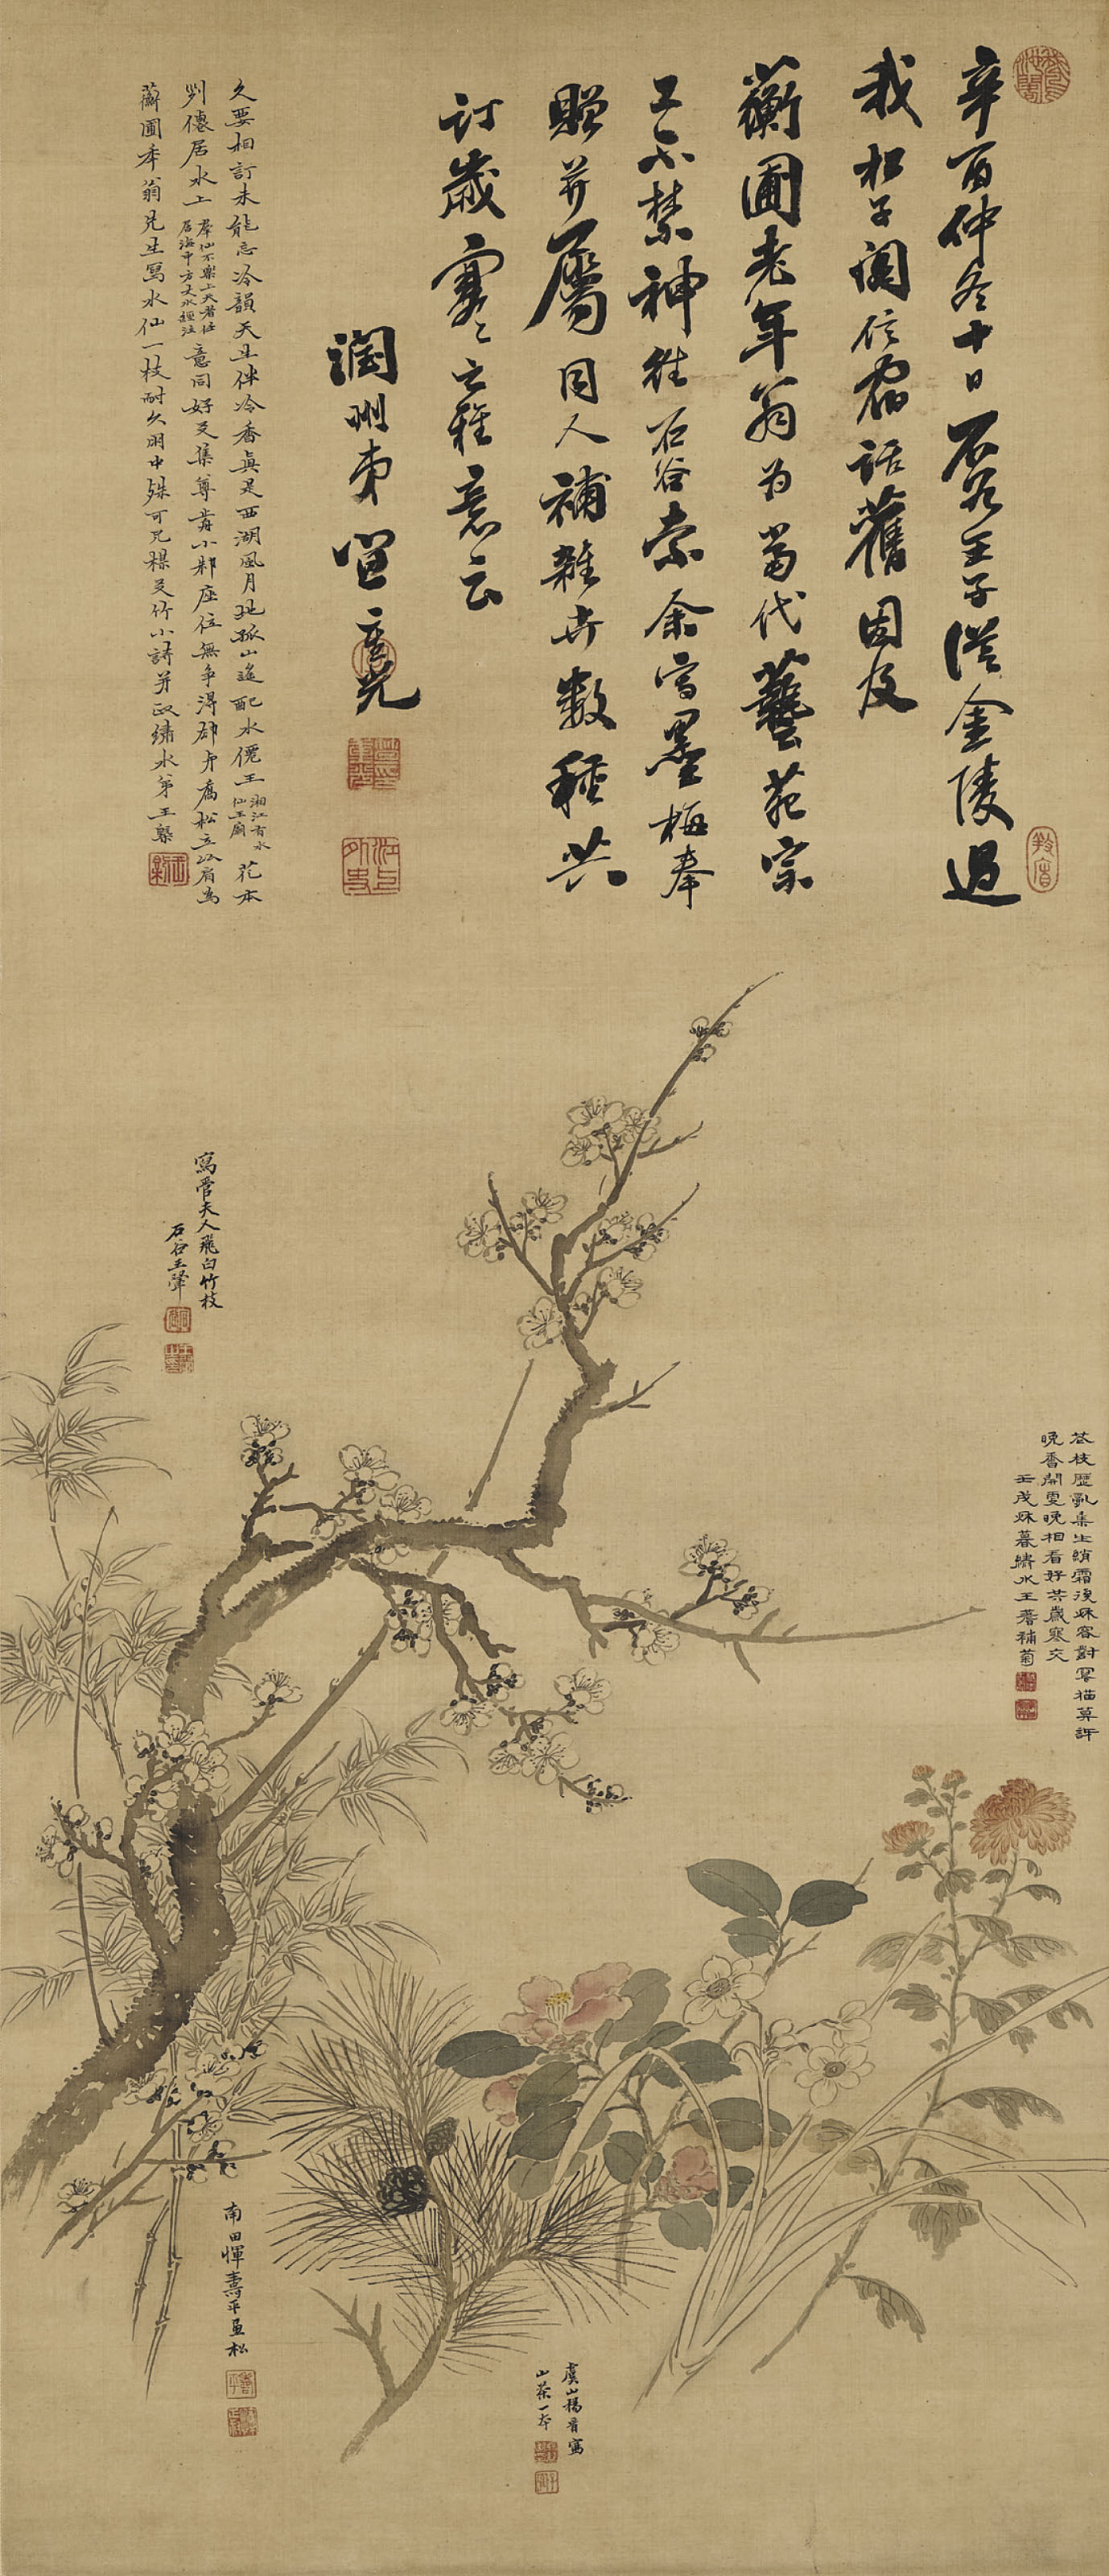 辛酉仲冬十日石谷王子從金陵過
我松子閣信宿話舊因及
蘅圃老年翁为當代藝苑宗
工不禁神往石谷索余写墨梅奉
贈并屬同人補雜卉數種共
訂歲寒之雅意云
潤州弟笪重光
久要相訂未能忘冷韻天生伴冷香真是西湖風月地孤山遙配水僊王湘江有水仙王廟花本
判僊居水上羣仙不樂上天者往居海中方丈水經注意同好友集尊前小鄰座位無爭得郤弟喬松立以肩為
蘅圃年翁兄生寫水仙一枝耐久朋中殊可兄梅友竹小詩并政繡水弟王槩
寫管夫人飛白竹枝
石谷王翬
花枝歷亂集生綃霜後秋容對畧描莫訝
晚香開更晚相看好共歲寒交
壬戌秋暮繡水王蓍補菊
南田惲壽平畫松
虞山楊晋寫
山茶一本